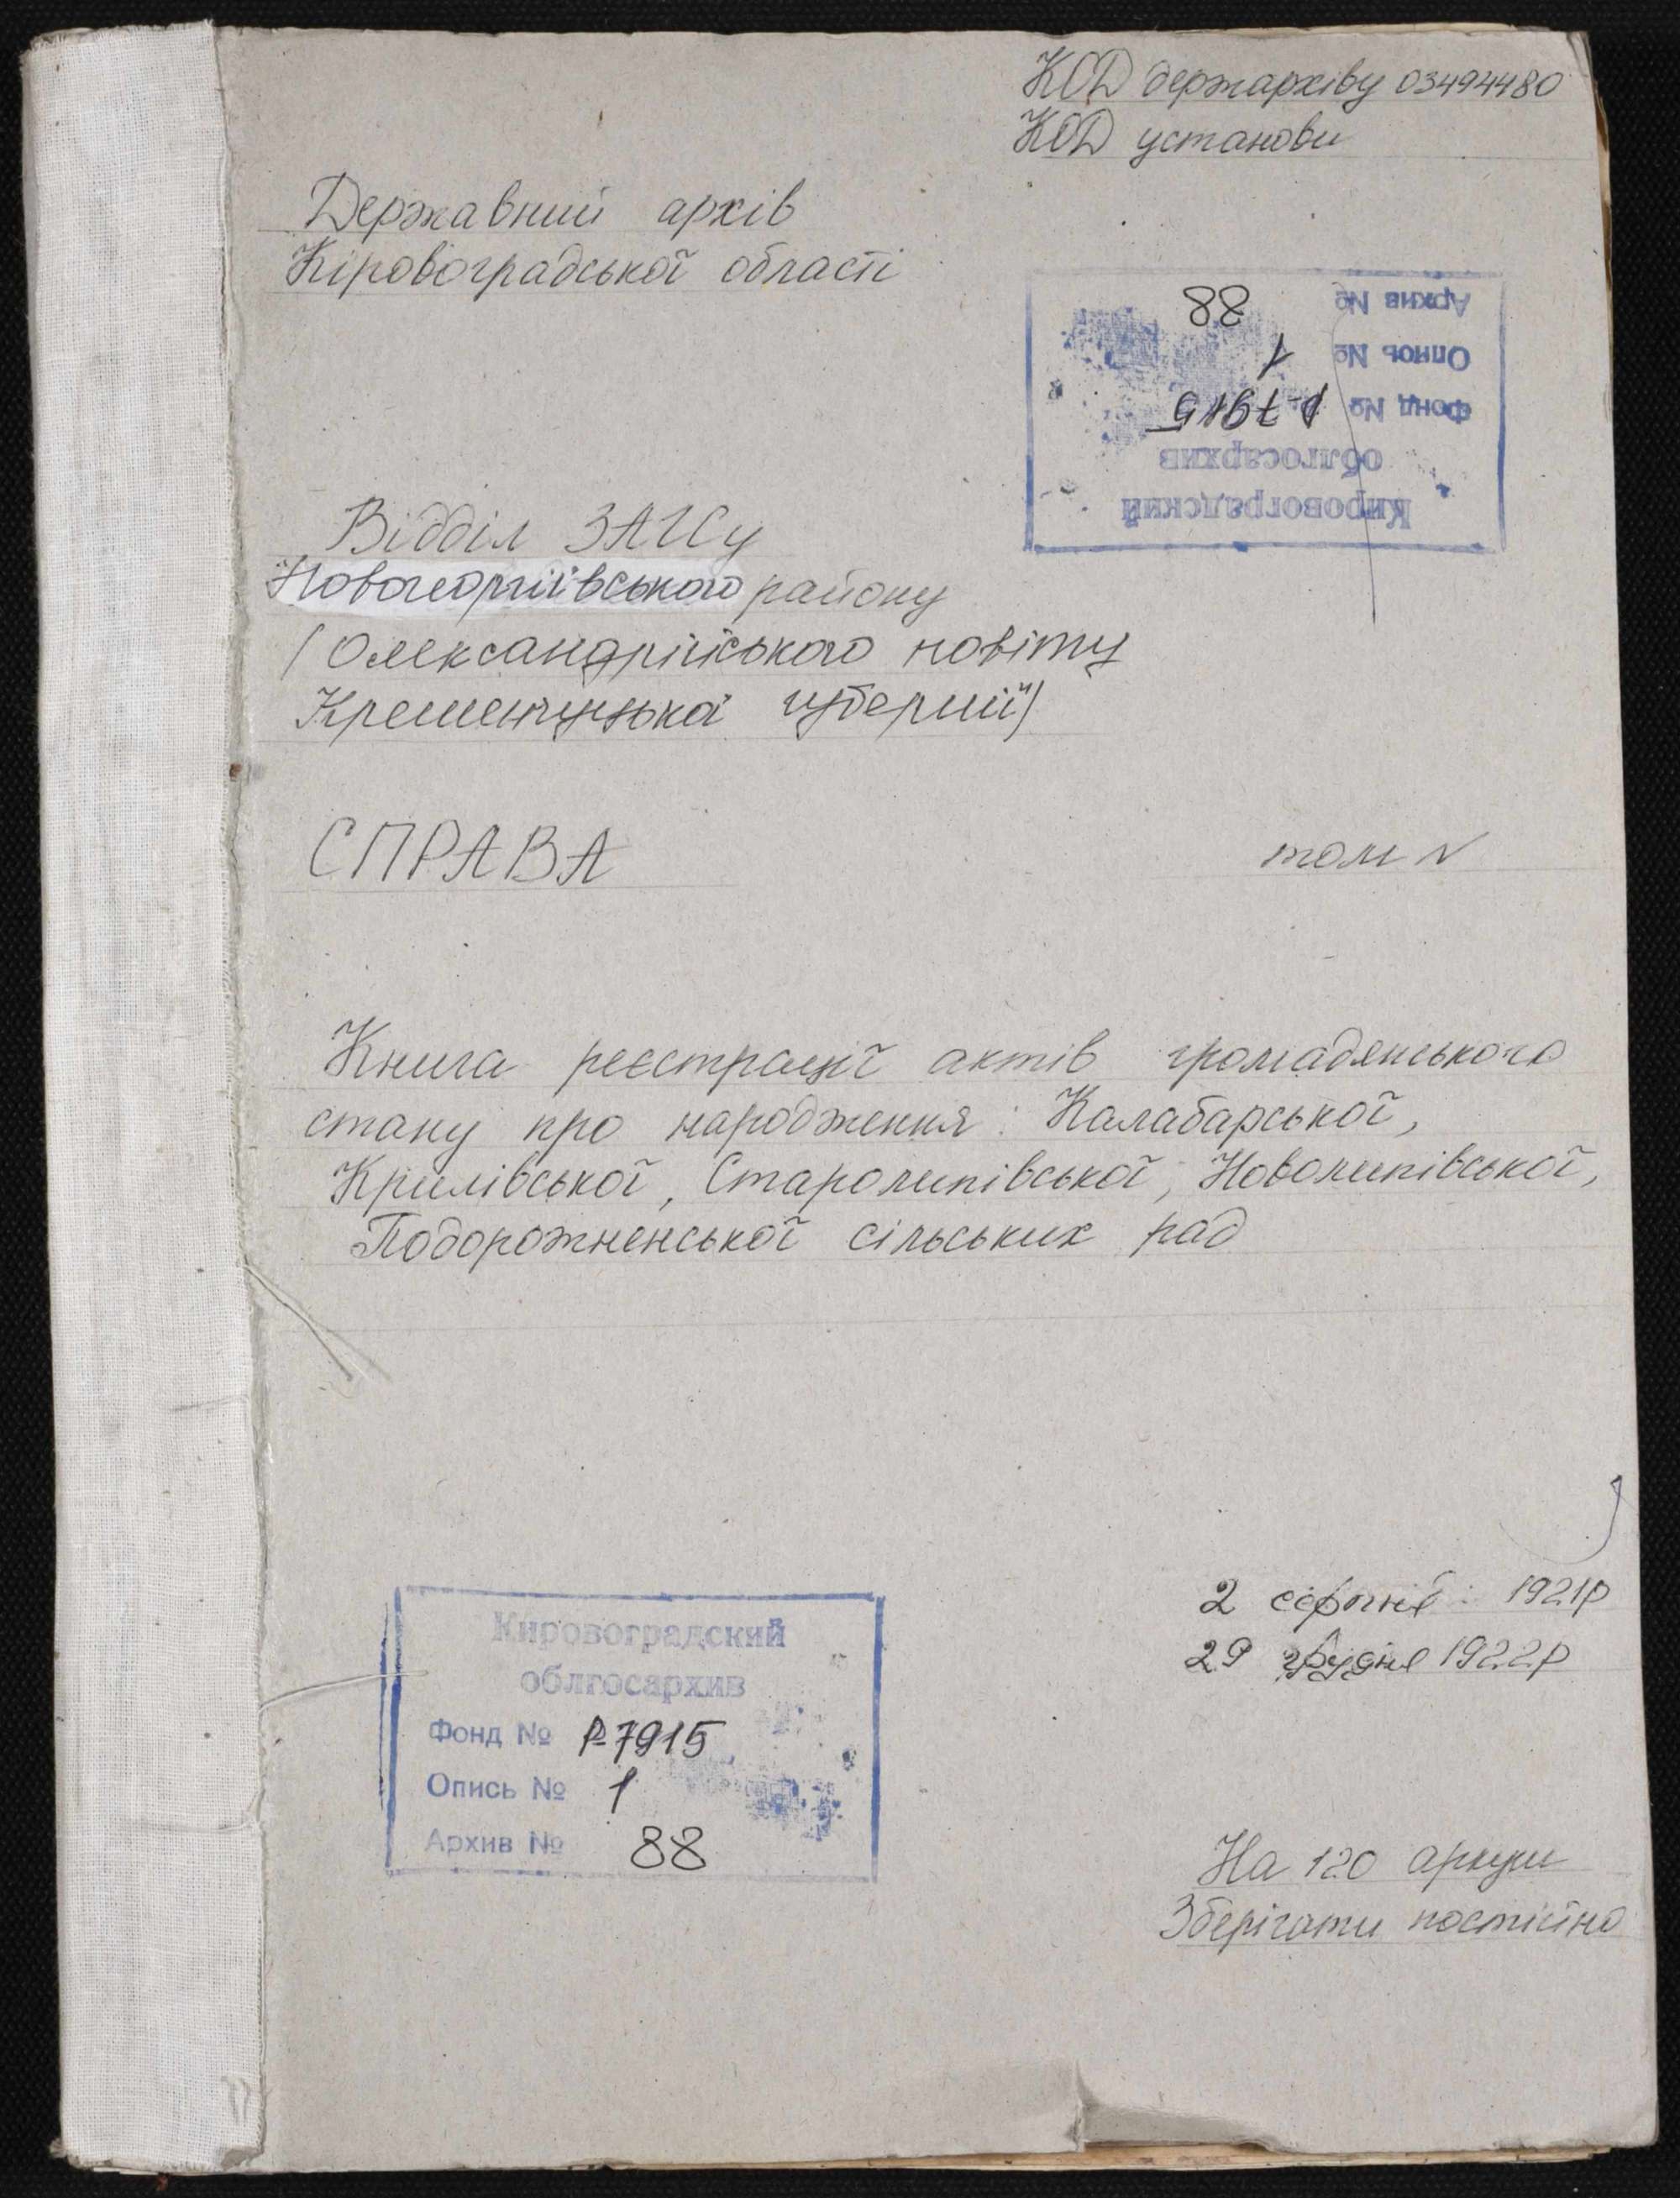 КОД держархіву 03494480
КОД установи
Державний архів
Кіровоградської області
Архив № 88
Опись № 1
Фонд № Р-7915
облгосархив
Кировоградский
Відділ ЗАГСу
Новогеоргіївського району
(Олександрійського повіту
Кременчуцька губернії)
СПРАВА
том №
Книга реєстрації актів громадянського
стану про народження: Калабарської,
Крилівської, Старолипівської, Новолипівської,
Подорожненської сільських рад
2 серпня 1921р
29 грудня 1922р
Кировоградский
облгосархив
Фонд № Р-7915
Опись № 1
Архив № 88
На 120 аркуш
Зберігати постійно